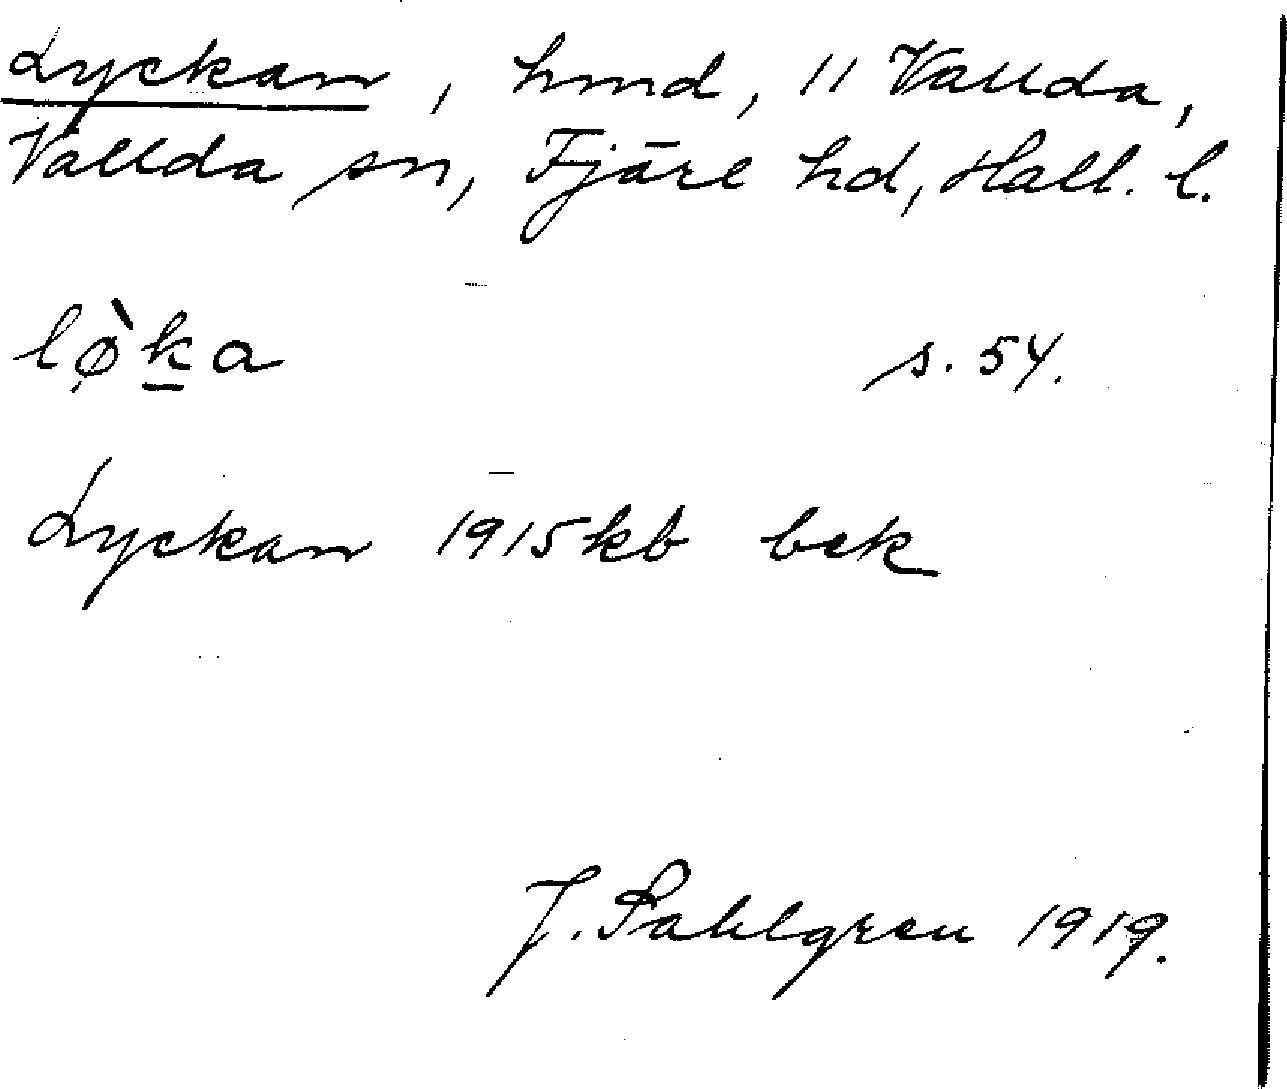 Lyckan, hmd, 11 Vallda,
Vallda sn, Fjäre hd, Hall. l.
lø̀k̲a s. 54.
Lyckan 1915 kb bek
J. Sahlgren 1919.